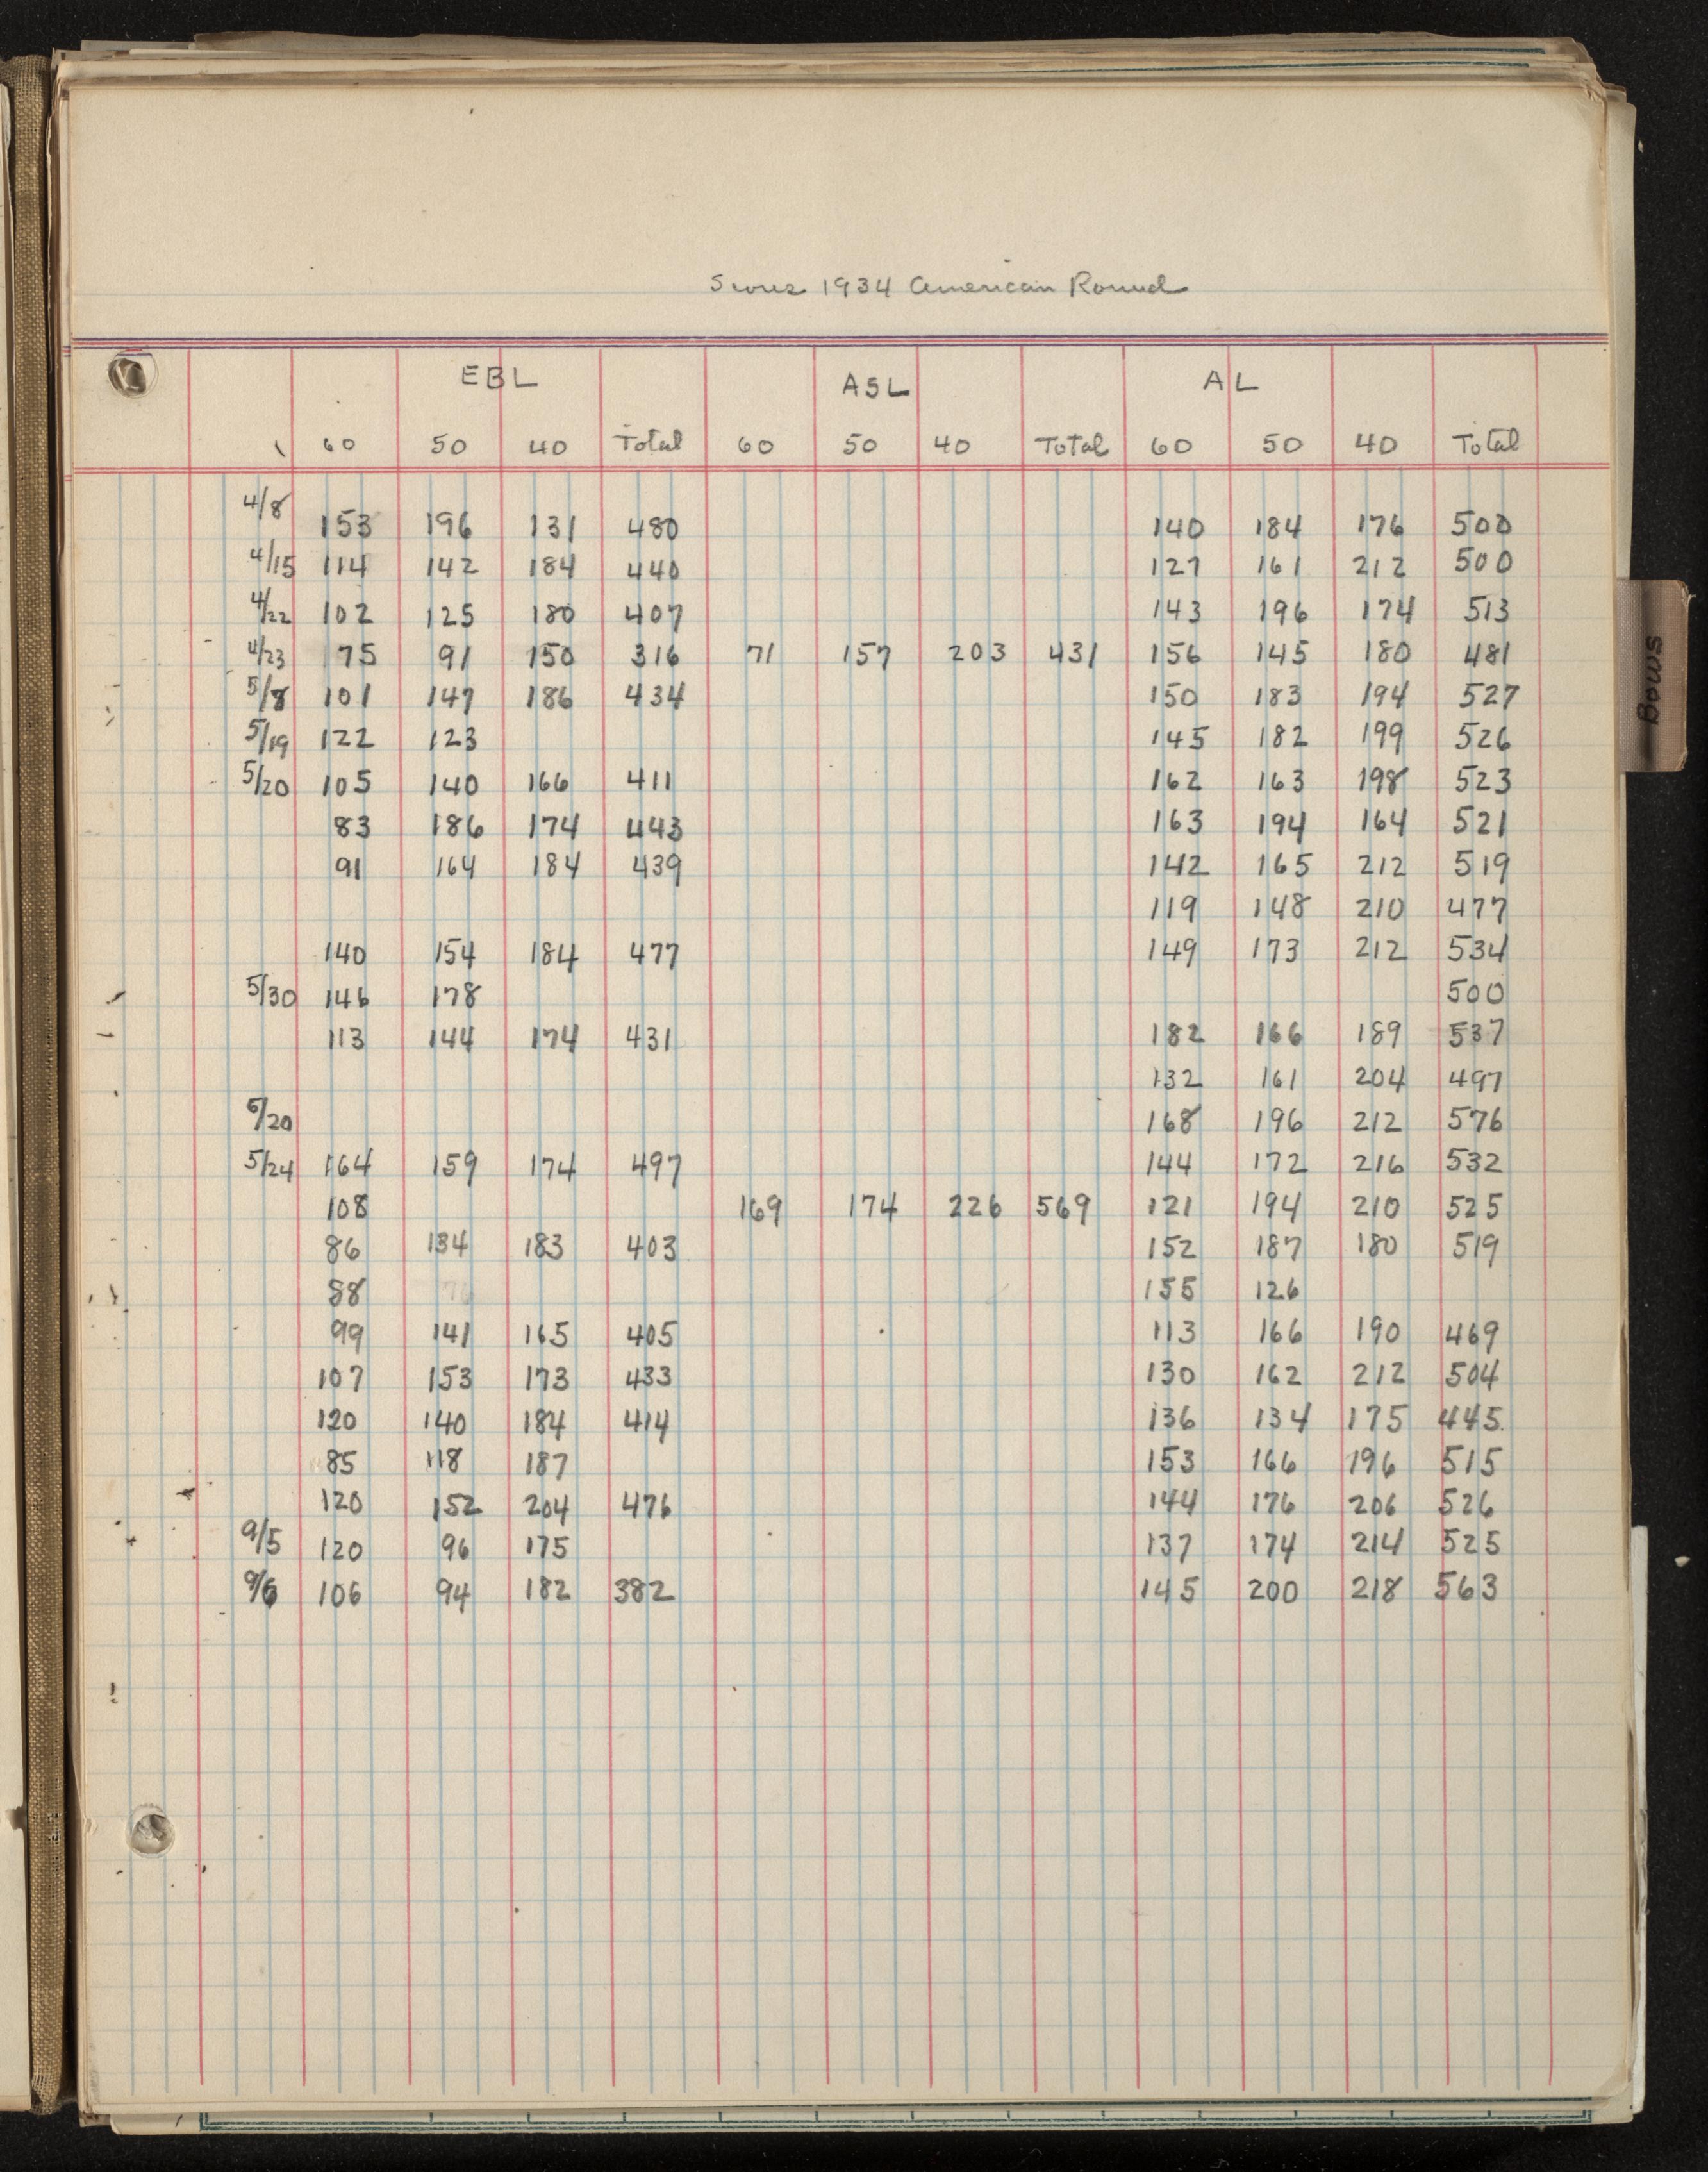 Scores 1934 American Round
EBL ASL AL
60 50 40 Total 60 50 40 Total 60 50 40 Total
4/8 153 196 131 480 140 184 176 500
4/15 114 142 184 440 127 161 212 500
4/22 102 125 180 407 143 196 174 513
4/23 75 91 150 316 71 157 203 431 156 145 180 481
5/8 101 147 186 434 150 183 194 527
5/19 122 123 145 182 199 526
5/20 105 140 166 411 162 163 198 523
83 186 174 443 163 194 164 521
91 164 184 439 142 165 212 519
119 148 210 477
140 154 184 477 149 173 212 534
5/30 146 178 500
113 144 174 431 182 166 189 537
132 161 204 497
/20 168 196 212 576
5/24 164 159 174 497 144 172 216 532
108 169 174 226 569 121 194 210 525
86 134 183 403 152 187 180 519
88 155 126
99 141 165 405 113 166 190 469
107 153 173 433 130 162 212 504
120 140 184 414 136 134 175 445
85 118 187 153 166 196 515
120 152 204 476 144 176 206 526
9/5 120 96 175 137 174 214 525
9/6 106 94 182 382 145 200 218 563
Bows